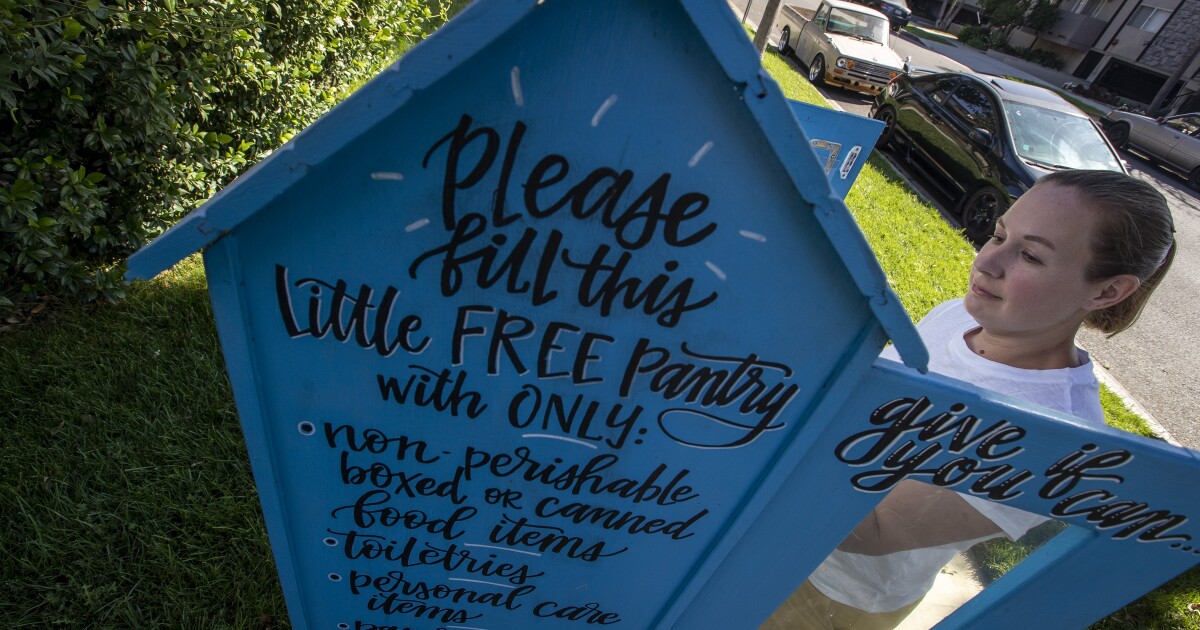 Please
fill this
Little FREE Pantry
with ONLY:
• non-perishable
boxed or canned
food items
• toiletries
• personal care
items
•
give if
you can...